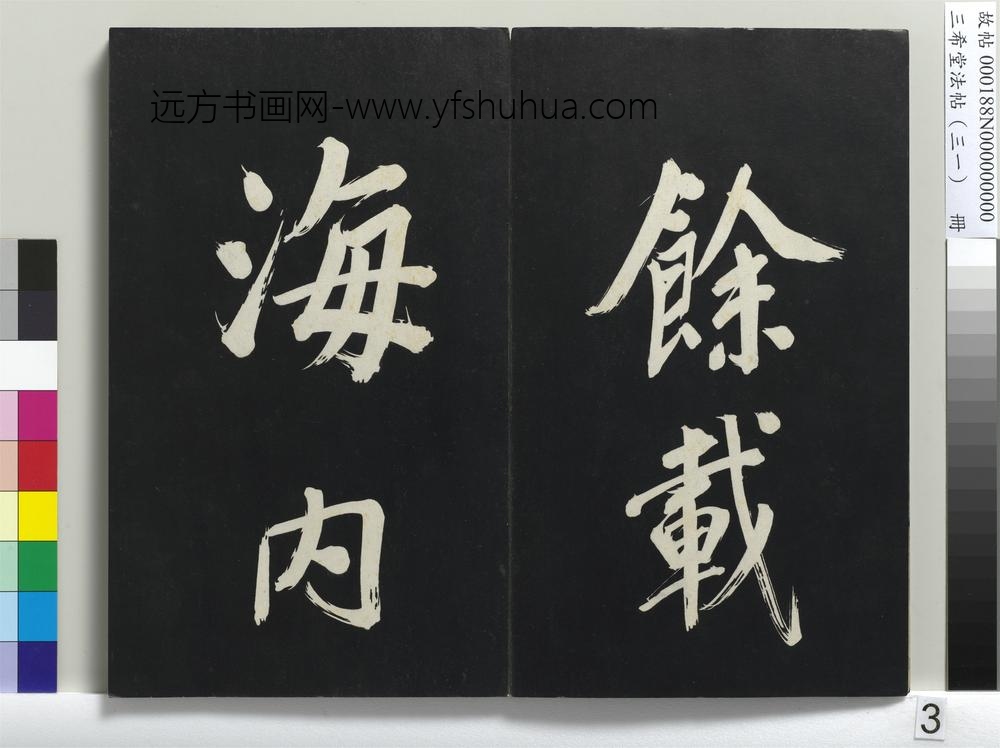 餘載
海内
远方书画网-www.yfshuhua.com
故帖 000188N000000000
三希堂法帖（三一） 冊
3